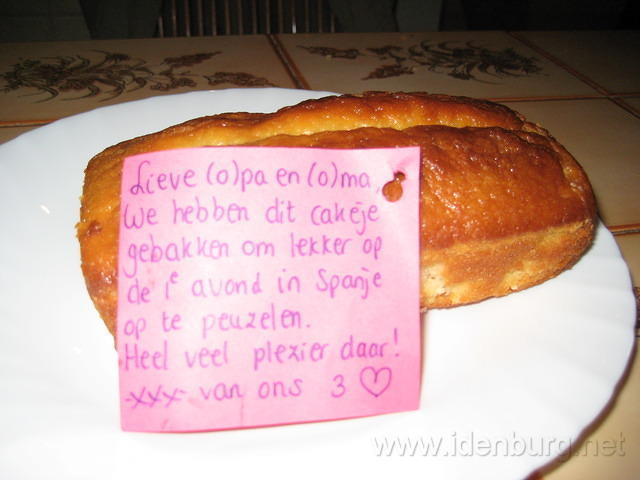 Lieve (o)pa en (o)ma
We hebben dit cakeje
gebakken om lekker op
de 1e avond in Spanje
op te peuzelen.
Heel veel plezier daar!
-xxx- van ons 3 ♡
www.idenburg.net